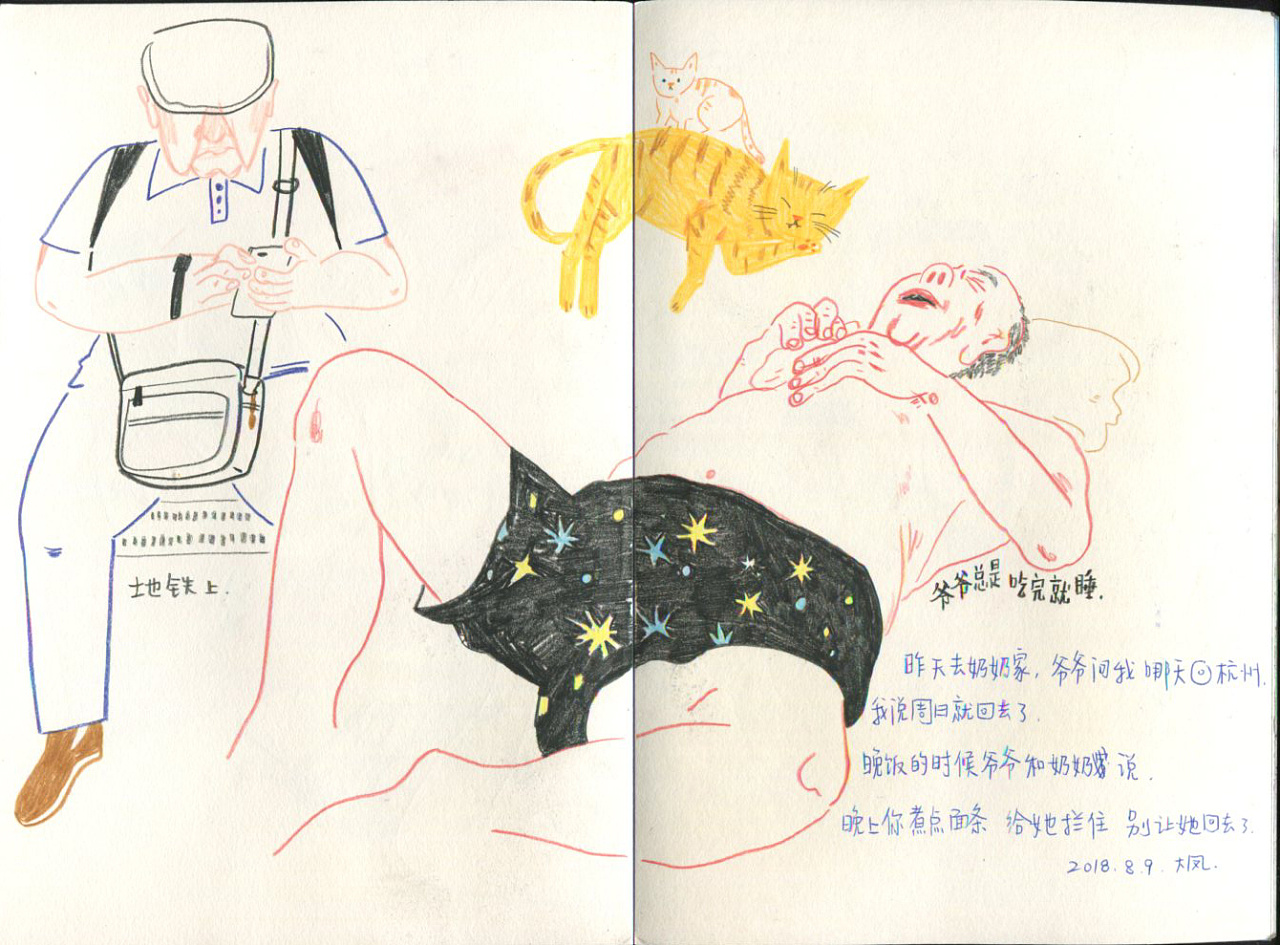 地铁上.
爷爷总是吃完就睡.
昨天去奶奶家,爷爷问我哪天回杭州.
我说周日就回去了.
晚饭的时候爷爷和奶奶说.
晚上你煮点面条 给她拦住 别让她回去了.
2018.8.9.大凤.